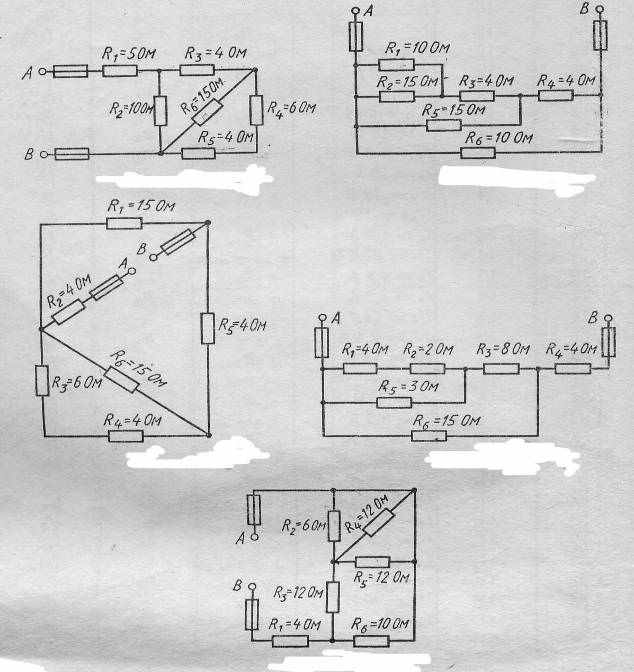 R1=5Ом R3=4 Ом
A
R2=10Ом R6=15Ом R4=6Ом
R5=4Ом
B
A B
R1=10 Ом
R2=15Ом R3=4Ом R4=4Ом
R5=15Ом
R6=10 Ом
R1=15 Ом
B
A
R2=4Ом
R5=4Ом
R6=15Ом
R3=6Ом
R4=4Ом
A B
R1=4Ом R2=2Ом R3=8Ом R4=4Ом
R5=3Ом
R6=15 Ом
R4=12Ом
R2=6Ом
A
R5=12Ом
B R3=12Ом
R1=4Ом R6=10 Ом